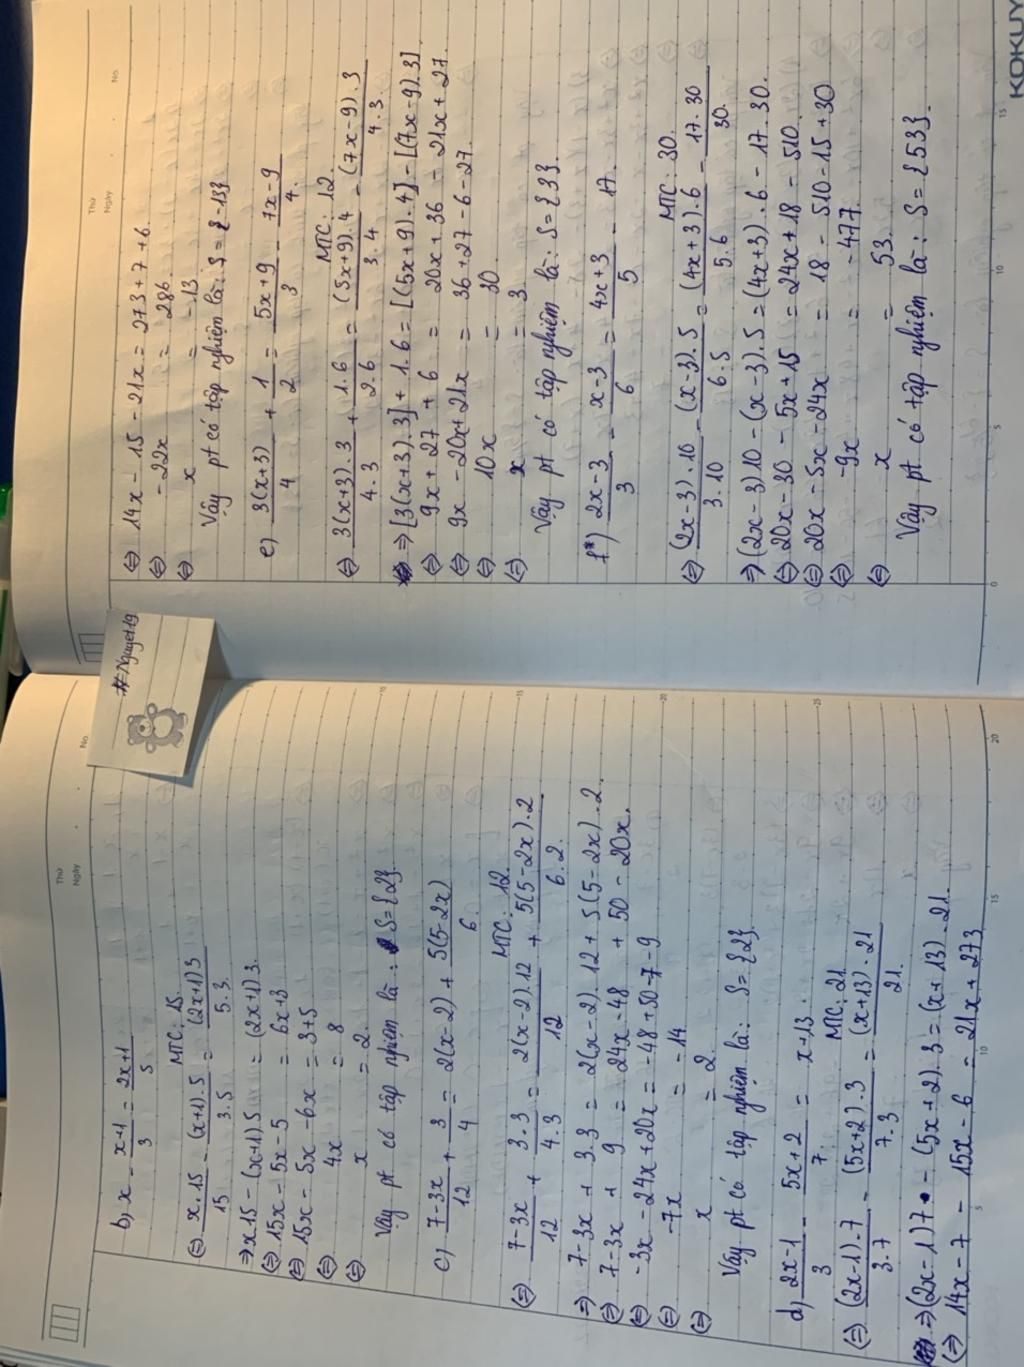 Thứ
Ngày
No.
b) x - x+1/3 = 2x+1/5
MTC: 15.
⇔ x.15/15 - (x+1).5/3.5 = (2x+1)3/5.3.
⇒ x15 - (x+1).5 = (2x+1)3.
⇔ 15x - 5x - 5 = 6x+3
⇔ 15x - 5x - 6x = 3+5
⇔ 4x = 8
⇔ x = 2.
Vậy pt có tập nghiệm là: S={2}.
c) 7-3x/12 + 3/4 = 2(x-2) + 5(5-2x)/6.
MTC: 12.
⇔ 7-3x/12 + 3.3/4.3 = 2(x-2).12/12 + 5(5-2x).2/6.2.
⇒ 7-3x + 3.3 = 2(x-2).12 + 5(5-2x).2.
⇔ 7-3x + 9 = 24x-48 + 50 - 20x.
⇔ -3x - 24x+20x = -48+50-7-9
⇔ -7x = -14
⇔ x = 2.
Vậy pt có tập nghiệm là: S={2}.
d) 2x-1/3 - 5x+2/7. = x+13.
MTC: 21.
⇔ (2x-1).7/3.7 - (5x+2).3/7.3 = (x+13).21/21.
⇒ (2x-1)7 - (5x+2).3 = (x+13).21.
⇔ 14x-7 - 15x-6 = 21x+273
#Nguyet19
Thứ
Ngày
No.
⇔ 14x - 15 - 21x = 273+7+6.
⇔ -22x = 286.
⇔ x = -13
Vậy pt có tập nghiệm là: S={-13}
e) 3(x+3)/4 + 1/2 = 5x+9/3 - 7x-9/4.
MTC: 12.
⇔ 3(x+3).3/4.3 + 1.6/2.6 = (5x+9).4/3.4 - (7x-9).3/4.3.
⇒ [3(x+3).3] + 1.6 = [(5x+9).4] - [(7x-9).3]
⇔ 9x + 27 + 6 = 20x + 36 - 21x + 27.
⇔ 9x - 20x+21x = 36+27-6-27.
⇔ 10x = 30
⇔ x = 3.
Vậy pt có tập nghiệm là: S={3}.
f*) 2x-3/3 - x-3/6 = 4x+3/5 - 17.
MTC: 30.
⇔ (2x-3).10/3.10 - (x-3).5/6.5 = (4x+3).6/5.6 - 17.30/30.
⇒ (2x-3)10 - (x-3).5 = (4x+3).6 - 17.30.
⇔ 20x-30 - 5x+15 = 24x+18 - 510.
⇔ 20x-5x-24x = 18-510-15+30
⇔ -9x = -477.
⇔ x = 53.
Vậy pt có tập nghiệm là: S={53}.
KOKUY